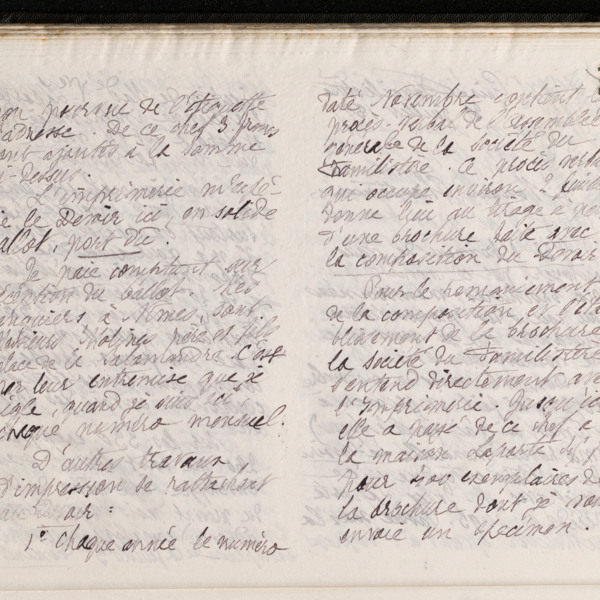 pourvue de l'étiquette
adresse. De ce chef 3 francs
sont ajoutés à la somme
ci-dessus.
L'imprimerie m'expédie
le Devoir ici, en solide
ballot, port dû.
Je paie comptant sur
réception du ballot. Mes
banquiers à Nîmes, sont
Molines père et fils
place de la Salamandre. C'est
par leur entremise que je
règle, quand je suis ici,
chaque numéro mensuel.
D'autres travaux
d'impression se rattachent
au :
1° Chaque année le numéro
daté Novembre contient
procès-verbal de l'assemblée
générale de la société du
Familistère. Ce procès verbal
qui occupe environ 2
donne lieu au tirage à part
d'une brochure faite avec
la composition du Devoir
Pour le remaniement
de la composition et l'établissement
de la brochure
la société du Familistère
s'entend directement avec
l'Imprimerie. Jusqu'ici
elle a payé de ce chef à
la maison Laporte
pour 400 exemplaires de
la brochure dont je vous
envoie un spécimen.